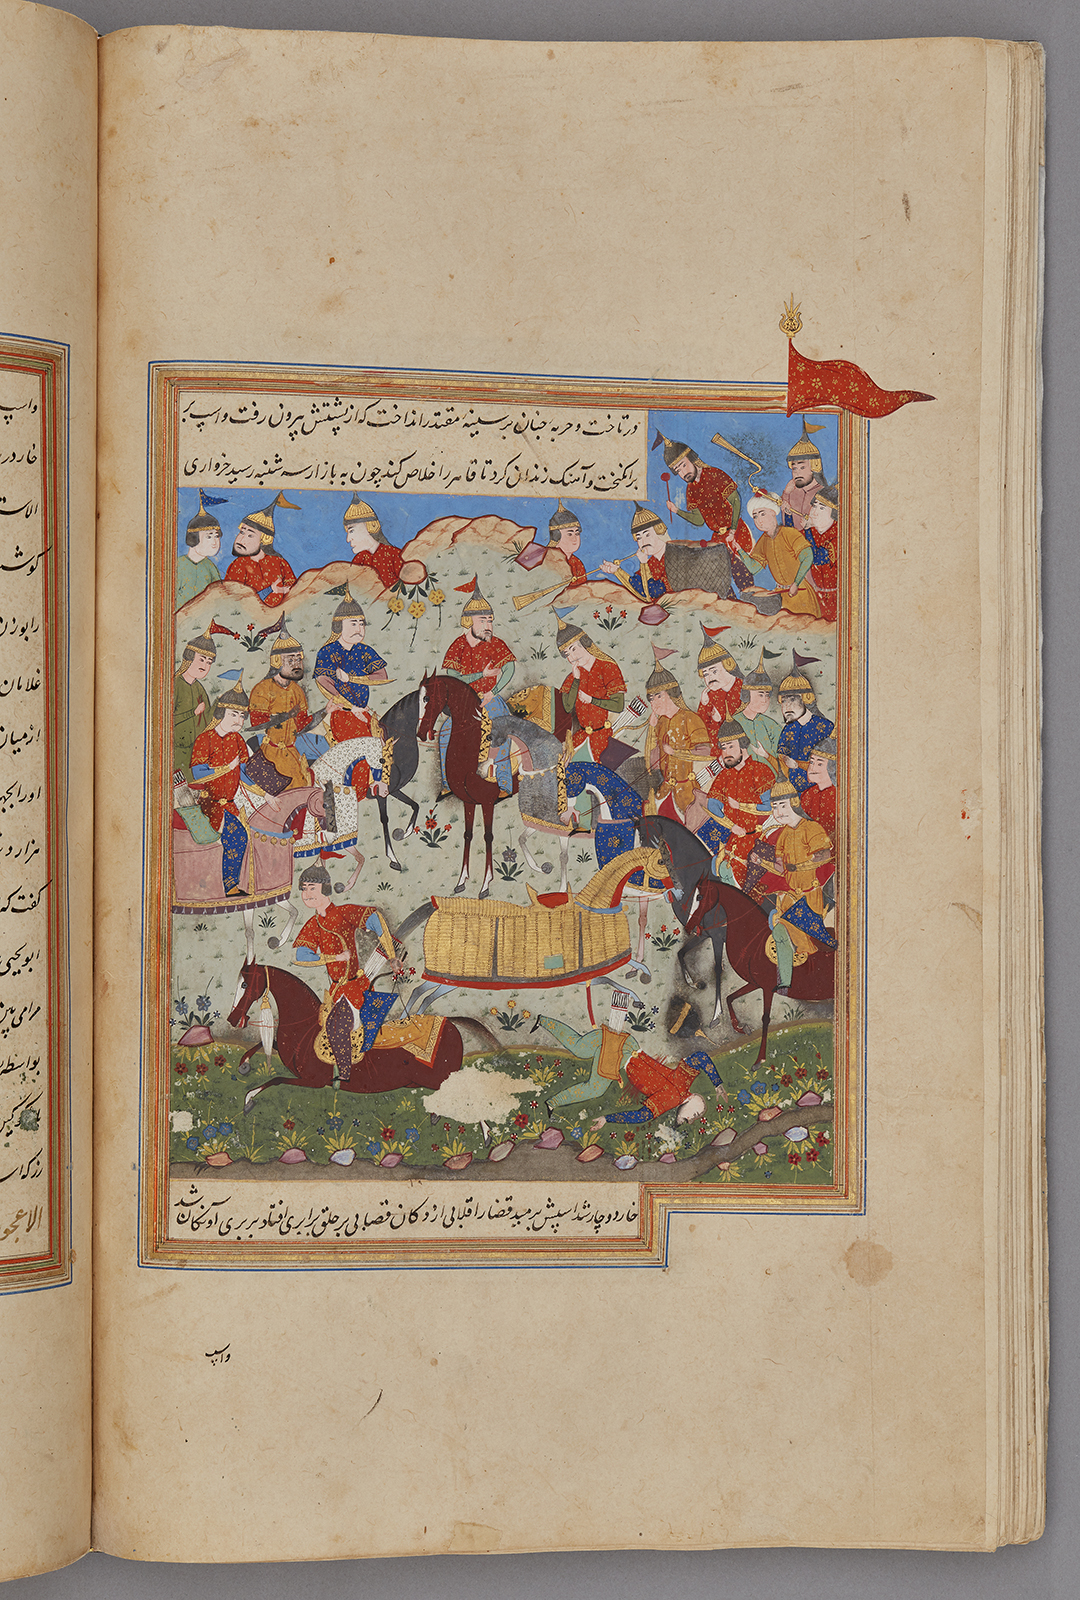 در تاخت و حربه چنان بر سینه مقتدر انداخت که از پشتش بیرون رفت و اسپ بر
برانکیخت و آهنک زندان کرد تا قاهر را خلاص کند چون به بازار سه شنبه رسید خرواری
خار دوچار شد اسپش برمید قضا را قلابی از دکان قصابی بر حلق بربری افتاد بربری آونکان شد
واسپ
واسپ
خار در
کوشـ
را بوزن
غلامان
از میان
اورا بجهـ
هزار و
کفت که
ابو یحیی
بواسطه